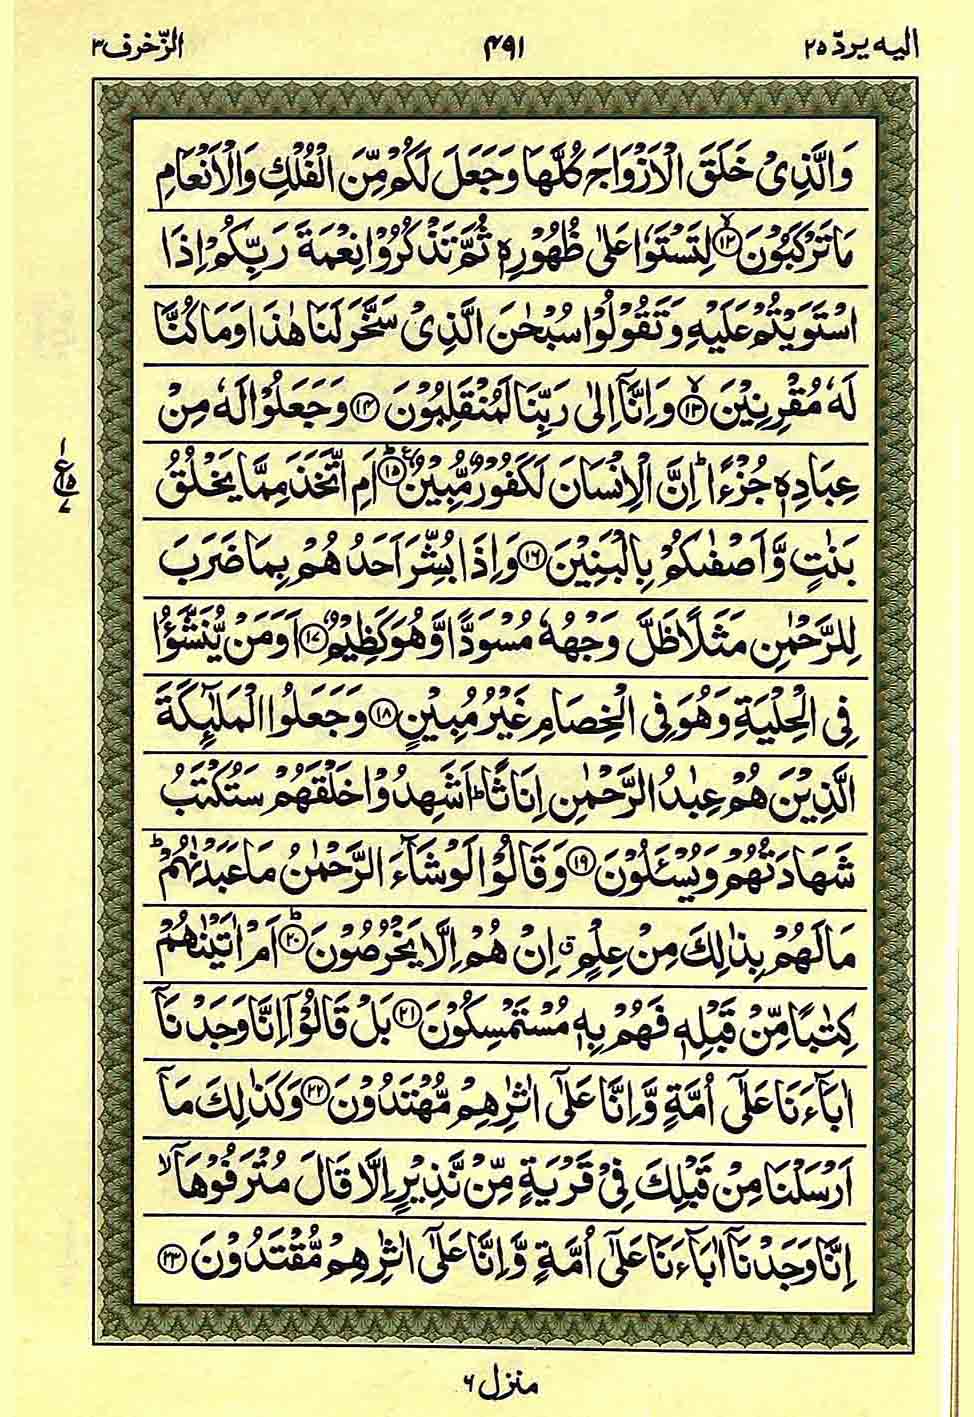 الیه یردّ ۲۵
۴۹۱
الزّخرف ۳
وَالَّذِیْ خَلَقَ الْاَزْوَاجَ كُلَّهَا وَجَعَلَ لَكُمْ مِّنَ الْفُلْكِ وَالْاَنْعَامِ
مَا تَرْكَبُوْنَ ۙ﴿۱۲﴾ لِتَسْتَوٗا عَلٰى ظُهُوْرِهٖ ثُمَّ تَذْكُرُوْا نِعْمَةَ رَبِّكُمْ اِذَا
اسْتَوَیْتُمْ عَلَیْهِ وَتَقُوْلُوْا سُبْحٰنَ الَّذِیْ سَخَّرَ لَنَا هٰذَا وَمَا كُنَّا
لَهٗ مُقْرِنِیْنَ ۙ﴿۱۳﴾ وَاِنَّاۤ اِلٰى رَبِّنَا لَمُنْقَلِبُوْنَ ﴿۱۴﴾ وَجَعَلُوْا لَهٗ مِنْ
عِبَادِهٖ جُزْءًا ؕ اِنَّ الْاِنْسَانَ لَكَفُوْرٌ مُّبِیْنٌ ؕ﴿۱۵﴾ اَمِ اتَّخَذَ مِمَّا یَخْلُقُ
۱
ع
۱۵
۷
بَنٰتٍ وَّاَصْفٰىكُمْ بِالْبَنِیْنَ ﴿۱۶﴾ وَاِذَا بُشِّرَ اَحَدُهُمْ بِمَا ضَرَبَ
لِلرَّحْمٰنِ مَثَلًا ظَلَّ وَجْهُهٗ مُسْوَدًّا وَّهُوَ كَظِیْمٌ ﴿۱۷﴾ اَوَمَنْ یُّنَشَّؤُا
فِی الْحِلْیَةِ وَهُوَ فِی الْخِصَامِ غَیْرُ مُبِیْنٍ ﴿۱۸﴾ وَجَعَلُوا الْمَلٰٓىِٕكَةَ
الَّذِیْنَ هُمْ عِبٰدُ الرَّحْمٰنِ اِنَاثًا ؕ اَشَهِدُوْا خَلْقَهُمْ سَتُكْتَبُ
شَهَادَتُهُمْ وَیُسْـَٔلُوْنَ ﴿۱۹﴾ وَقَالُوْا لَوْ شَآءَ الرَّحْمٰنُ مَا عَبَدْنٰهُمْ ؕ
مَا لَهُمْ بِذٰلِكَ مِنْ عِلْمٍ ۗ اِنْ هُمْ اِلَّا یَخْرُصُوْنَ ؕ﴿۲۰﴾ اَمْ اٰتَیْنٰهُمْ
كِتٰبًا مِّنْ قَبْلِهٖ فَهُمْ بِهٖ مُسْتَمْسِكُوْنَ ﴿۲۱﴾ بَلْ قَالُوْۤا اِنَّا وَجَدْنَاۤ
اٰبَآءَنَا عَلٰۤى اُمَّةٍ وَّاِنَّا عَلٰۤى اٰثٰرِهِمْ مُّهْتَدُوْنَ ﴿۲۲﴾ وَكَذٰلِكَ مَاۤ
اَرْسَلْنَا مِنْ قَبْلِكَ فِیْ قَرْیَةٍ مِّنْ نَّذِیْرٍ اِلَّا قَالَ مُتْرَفُوْهَاۤ ۙ
اِنَّا وَجَدْنَاۤ اٰبَآءَنَا عَلٰۤى اُمَّةٍ وَّاِنَّا عَلٰۤى اٰثٰرِهِمْ مُّقْتَدُوْنَ ﴿۲۳﴾
منزل ۶